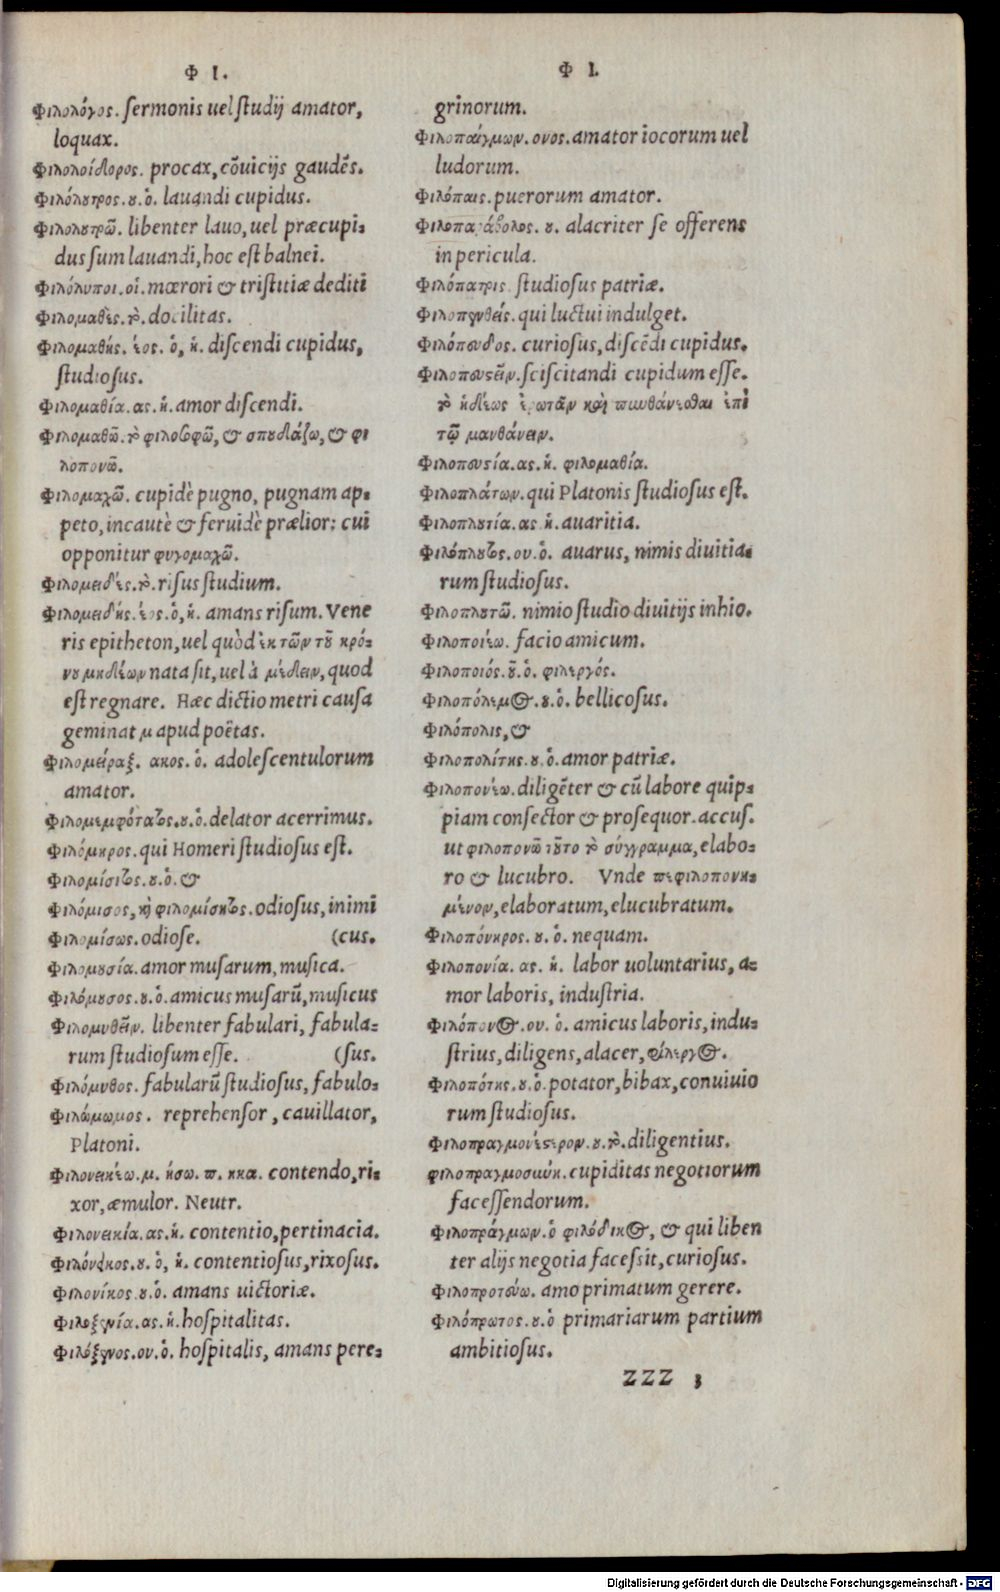 Φ Ι.
Φιλολόγος. sermonis uel studij amator,
loquax.
Φιλολοίδορος. procax, cōuicijs gaudēs.
Φιλόλουτρος. ου. ὁ. lauandi cupidus.
Φιλολουτρῶ. libenter lauo, uel præcupi-
dus sum lauandi, hoc est balnei.
Φιλόλυποι. οἱ. mœrori & tristitiæ dediti
Φιλομαθὲς. τὸ. docilitas.
Φιλομαθής. έος. ὁ, ἡ. discendi cupidus,
studiosus.
Φιλομαθία. ας. ἡ. amor discendi.
Φιλομαθῶ. τὸ φιλοσοφῶ, & σπουδάζω, & φι
λοπονῶ.
Φιλομαχῶ. cupidè pugno, pugnam ap-
peto, incautè & feruidè prælior: cui
opponitur φυγομαχῶ.
Φιλομειδές. τὸ. risus studium.
Φιλομειδής. έος. ὁ, ἡ. amans risum. Vene
ris epitheton, uel quòd ἐκ τῶν τοῦ κρό-
νου μηδέων nata sit, uel à μέδειν, quod
est regnare. Hæc dictio metri causa
geminat μ apud poëtas.
Φιλομείραξ. ακος. ὁ. adolescentulorum
amator.
Φιλομεμφότατος. ου. ὁ. delator acerrimus.
Φιλόμηρος. qui Homeri studiosus est.
Φιλομίσιτος. ου. ὁ. &
Φιλόμισος, καὶ φιλομίσητος. odiosus, inimi
Φιλομίσως. odiose. (cus.
Φιλομουσία. amor musarum, musica.
Φιλόμουσος. ου. ὁ. amicus musarū, musicus
Φιλομυθεῖν. libenter fabulari, fabula-
rum studiosum esse. (sus.
Φιλόμυθος. fabularū studiosus, fabulo-
Φιλώμωμος. reprehensor, cauillator,
Platoni.
Φιλονεικέω. μ. ήσω. π. ηκα. contendo, ri-
xor, æmulor. Neutr.
Φιλονεικία. ας. ἡ. contentio, pertinacia.
Φιλόνεικος. ου. ὁ, ἡ. contentiosus, rixosus.
Φιλονίκος. ου. ὁ. amans uictoriæ.
Φιλοξενία. ας. ἡ. hospitalitas.
Φιλόξενος. ου. ὁ. hospitalis, amans pere-
Φ Ι.
grinorum.
Φιλοπαίγμων. ονος. amator iocorum uel
ludorum.
Φιλόπαις. puerorum amator.
Φιλοπαράβολος. ου. alacriter se offerens
in pericula.
Φιλόπατρις. studiosus patriæ.
Φιλοπενθής. qui luctui indulget.
Φιλόπευδος. curiosus, discēdi cupidus.
Φιλοπευστεῖν. sciscitandi cupidum esse.
τὸ ἡδέως ἐρωτᾶν καὶ πυνθάνεσθαι ἐπὶ
τῷ μανθάνειν.
Φιλοπευσία. ας. ἡ. φιλομαθία.
Φιλοπλάτων. qui Platonis studiosus est.
Φιλοπλουτία. ας. ἡ. auaritia.
Φιλόπλουτος. ου. ὁ. auarus, nimis diuitia-
rum studiosus.
Φιλοπλουτῶ. nimio studio diuitijs inhio.
Φιλοποιέω. facio amicum.
Φιλοποιός. οῦ. ὁ. φιλεργός.
Φιλοπόλεμος. ου. ὁ. bellicosus.
Φιλόπολις, &
Φιλοπολίτης. ου. ὁ. amor patriæ.
Φιλοπονέω. diligēter & cū labore quip-
piam consector & prosequor. accus.
ut φιλοπονῶ τοῦτο τὸ σύγγραμμα, elabo-
ro & lucubro. Vnde πεφιλοπονη-
μένον, elaboratum, elucubratum.
Φιλοπόνηρος. ου. ὁ. nequam.
Φιλοπονία. ας. ἡ. labor uoluntarius, a-
mor laboris, industria.
Φιλόπονος. ου. ὁ. amicus laboris, indu-
strius, diligens, alacer, φίλεργος.
Φιλοπότης. ου. ὁ. potator, bibax, conuiuio
rum studiosus.
Φιλοπραγμονέστερον. ου. τὸ. diligentius.
φιλοπραγμοσύνη. cupiditas negotiorum
facessendorum.
Φιλοπράγμων. ὁ φιλόδικος, & qui liben
ter alijs negotia facessit, curiosus.
Φιλοπρωτεύω. amo primatum gerere.
Φιλόπρωτος. ου. ὁ primariarum partium
ambitiosus.
ZZZ 3
Digitalisierung gefördert durch die Deutsche Forschungsgemeinschaft - DFG